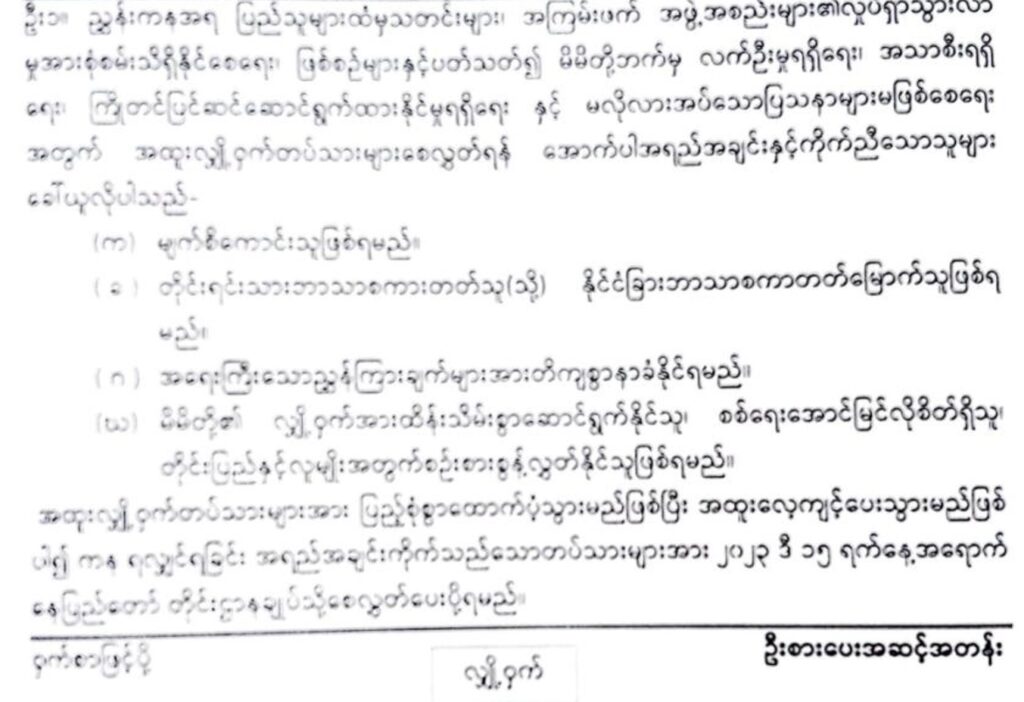 ဦး၁။ ညွှန်းကနအရ ပြည်သူများထံမှသတင်းများ၊ အကြမ်းဖက် အဖွဲ့အစည်းများ၏လှုပ်ရှာသွားလာ
မှုအားစုံစမ်းသိရှိနိုင်စေရေး၊ ဖြစ်စဉ်များနှင့်ပတ်သတ်၍ မိမိတို့ဘက်မှ လက်ဦးမှုရရှိရေး၊ အသာစီးရရှိ
ရေး၊ ကြိုတင်ပြင်ဆင်ဆောင်ရွက်ထားနိုင်မှုရရှိရေး နှင့် မလိုလားအပ်သောပြသနာများမဖြစ်စေရေး
အတွက် အထူးလျှို့ဝှက်တပ်သားများစေလွှတ်ရန် အောက်ပါအရည်အချင်းနှင့်ကိုက်ညီသောသူများ
ခေါ်ယူလိုပါသည်-
(က) မျက်စိကောင်းသူဖြစ်ရမည်။
(ခ) တိုင်းရင်းသားဘာသာစကားတတ်သူ(သို့) နိုင်ငံခြားဘာသာစကာတတ်မြောက်သူဖြစ်ရ
မည်။
(ဂ) အရေးကြီးသောညွှန်ကြားချက်များအားတိကျစွာနာခံနိုင်ရမည်။
(ဃ) မိမိတို့၏ လျှို့ဝှက်အားထိန်းသိမ်းစွာဆောင်ရွက်နိုင်သူ၊ စစ်ရေးအောင်မြင်လိုစိတ်ရှိသူ၊
တိုင်းပြည်နှင့်လူမျိုးအတွက်စဉ်းစားစွန့်လွှတ်နိုင်သူဖြစ်ရမည်။
အထူးလျှို့ဝှက်တပ်သားများအား ပြည့်စုံစွာထောက်ပံ့သွားမည်ဖြစ်ပြီး အထူးလေ့ကျင့်ပေးသွားမည်ဖြစ်
ပါ၍ ကန ရလျှင်ရခြင်း အရည်အချင်းကိုက်သည်သောတပ်သားများအား ၂၀၂၃ ဒီ ၁၅ ရက်နေ့အရောက်
နေပြည်တော် တိုင်းဌာနချုပ်သို့စေလွှတ်ပေးပို့ရမည်။
ဝှက်စာဖြင့်ပို့
လျှို့ဝှက်
ဦးစားပေးအဆင့်အတန်း